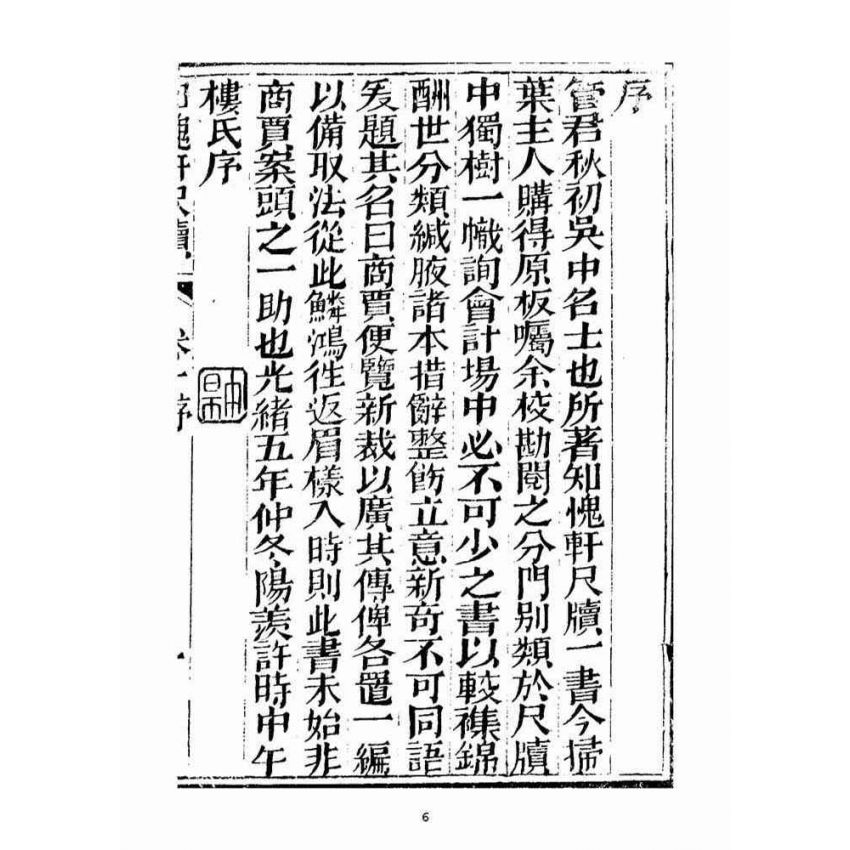 序
管君秋初吳中名士也所著知愧軒尺牘一書今掃
葉主人購得原板囑余校勘閱之分門別類於尺牘
中獨樹一幟詢會計場中必不可少之書以較襍錦
酬世分類緘腋諸本措辭整飭立意新奇不可同語
爰題其名曰商賈便覽新裁以廣其傳俾各置一編
以備取法從此鱗鴻徃返眉樣入時則此書未始非
商賈案頭之一助也光緒五年仲冬陽羨許時中午
樓氏序
知愧軒尺牘 卷一序
6